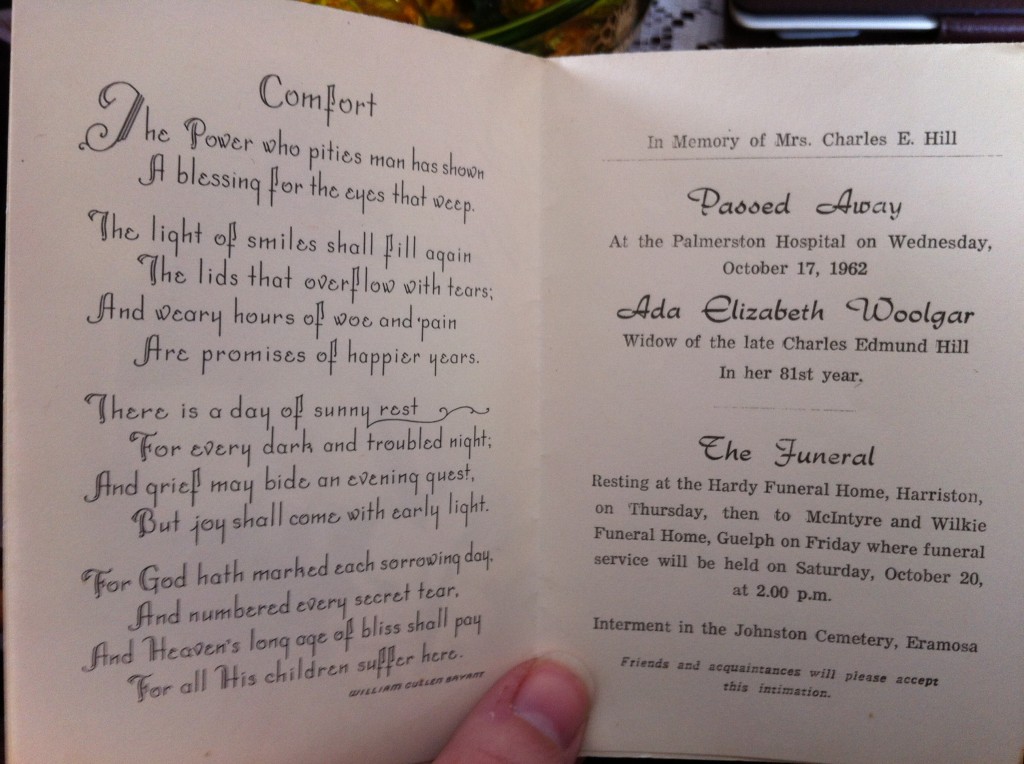 Comfort
The Power who pities man has shown
A blessing for the eyes that weep.
The light of smiles shall fill again
The lids that overflow with tears;
And weary hours of woe and pain
Are promises of happier years.
There is a day of sunny rest
For every dark and troubled night;
And grief may bide an evening guest,
But joy shall come with early light.
For God hath marked each sorrowing day,
And numbered every secret tear,
And Heaven's long age of bliss shall pay
For all His children suffer here.
WILLIAM CULLEN BRYANT
In Memory of Mrs. Charles E. Hill
Passed Away
At the Palmerston Hospital on Wednesday,
October 17, 1962
Ada Elizabeth Woolgar
Widow of the late Charles Edmund Hill
In her 81st year,
The Funeral
Resting at the Hardy Funeral Home, Harriston,
on Thursday, then to McIntyre and Wilkie
Funeral Home, Guelph on Friday where funeral
service will be held on Saturday, October 20,
at 2.00 p.m.
Interment in the Johnston Cemetery, Eramosa
Friends and acquaintances will please accept
this intimation.